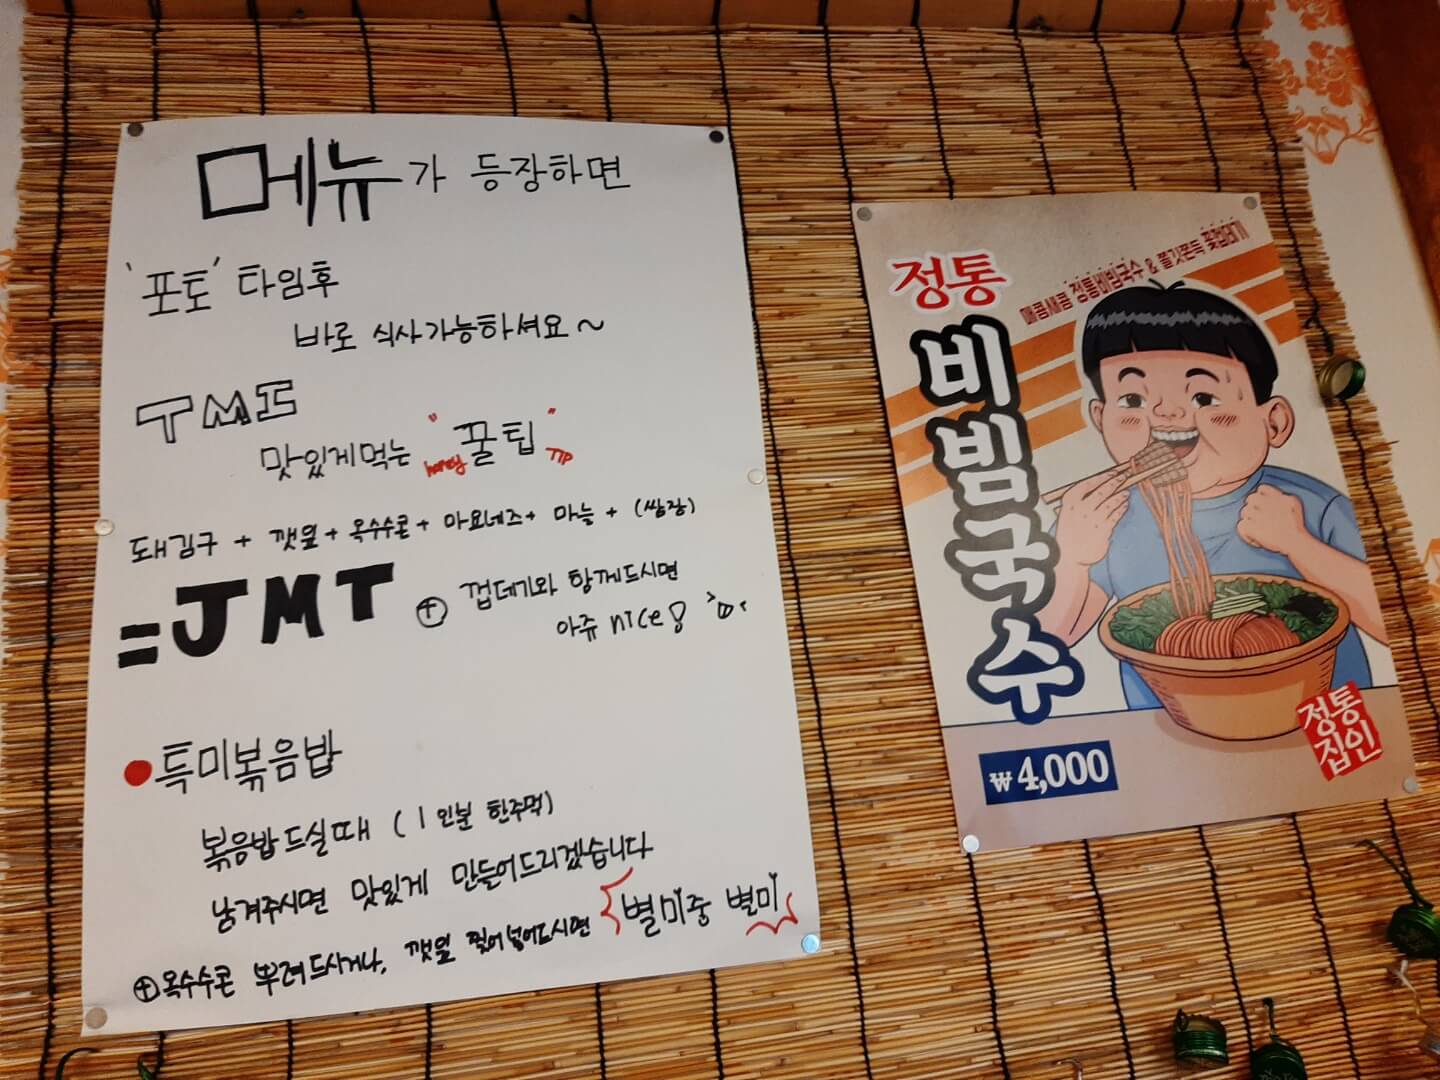 메뉴가 등장하면
'포토' 타임후
바로 식사가능하셔요~
TMI
맛있게먹는 "꿀팁"
honey TIP
돼김구 + 깻잎 + 옥수수콘 + 마요네즈 + 마늘 + (쌈장)
=JMT ⊕ 껍데기와 함께드시면
아쥬 nice!
특미볶음밥
볶음밥드실때 (1인분 한주먹)
남겨주시면 맛있게 만들어드리겠습니다
⊕옥수수콘 뿌려드시거나, 깻잎 찢어넣어드시면 별미중 별미
매콤새콤 정통비빔국수 & 쫄깃쫀득 꽃껍데기
정통
비빔국수
₩4,000
정통
집인